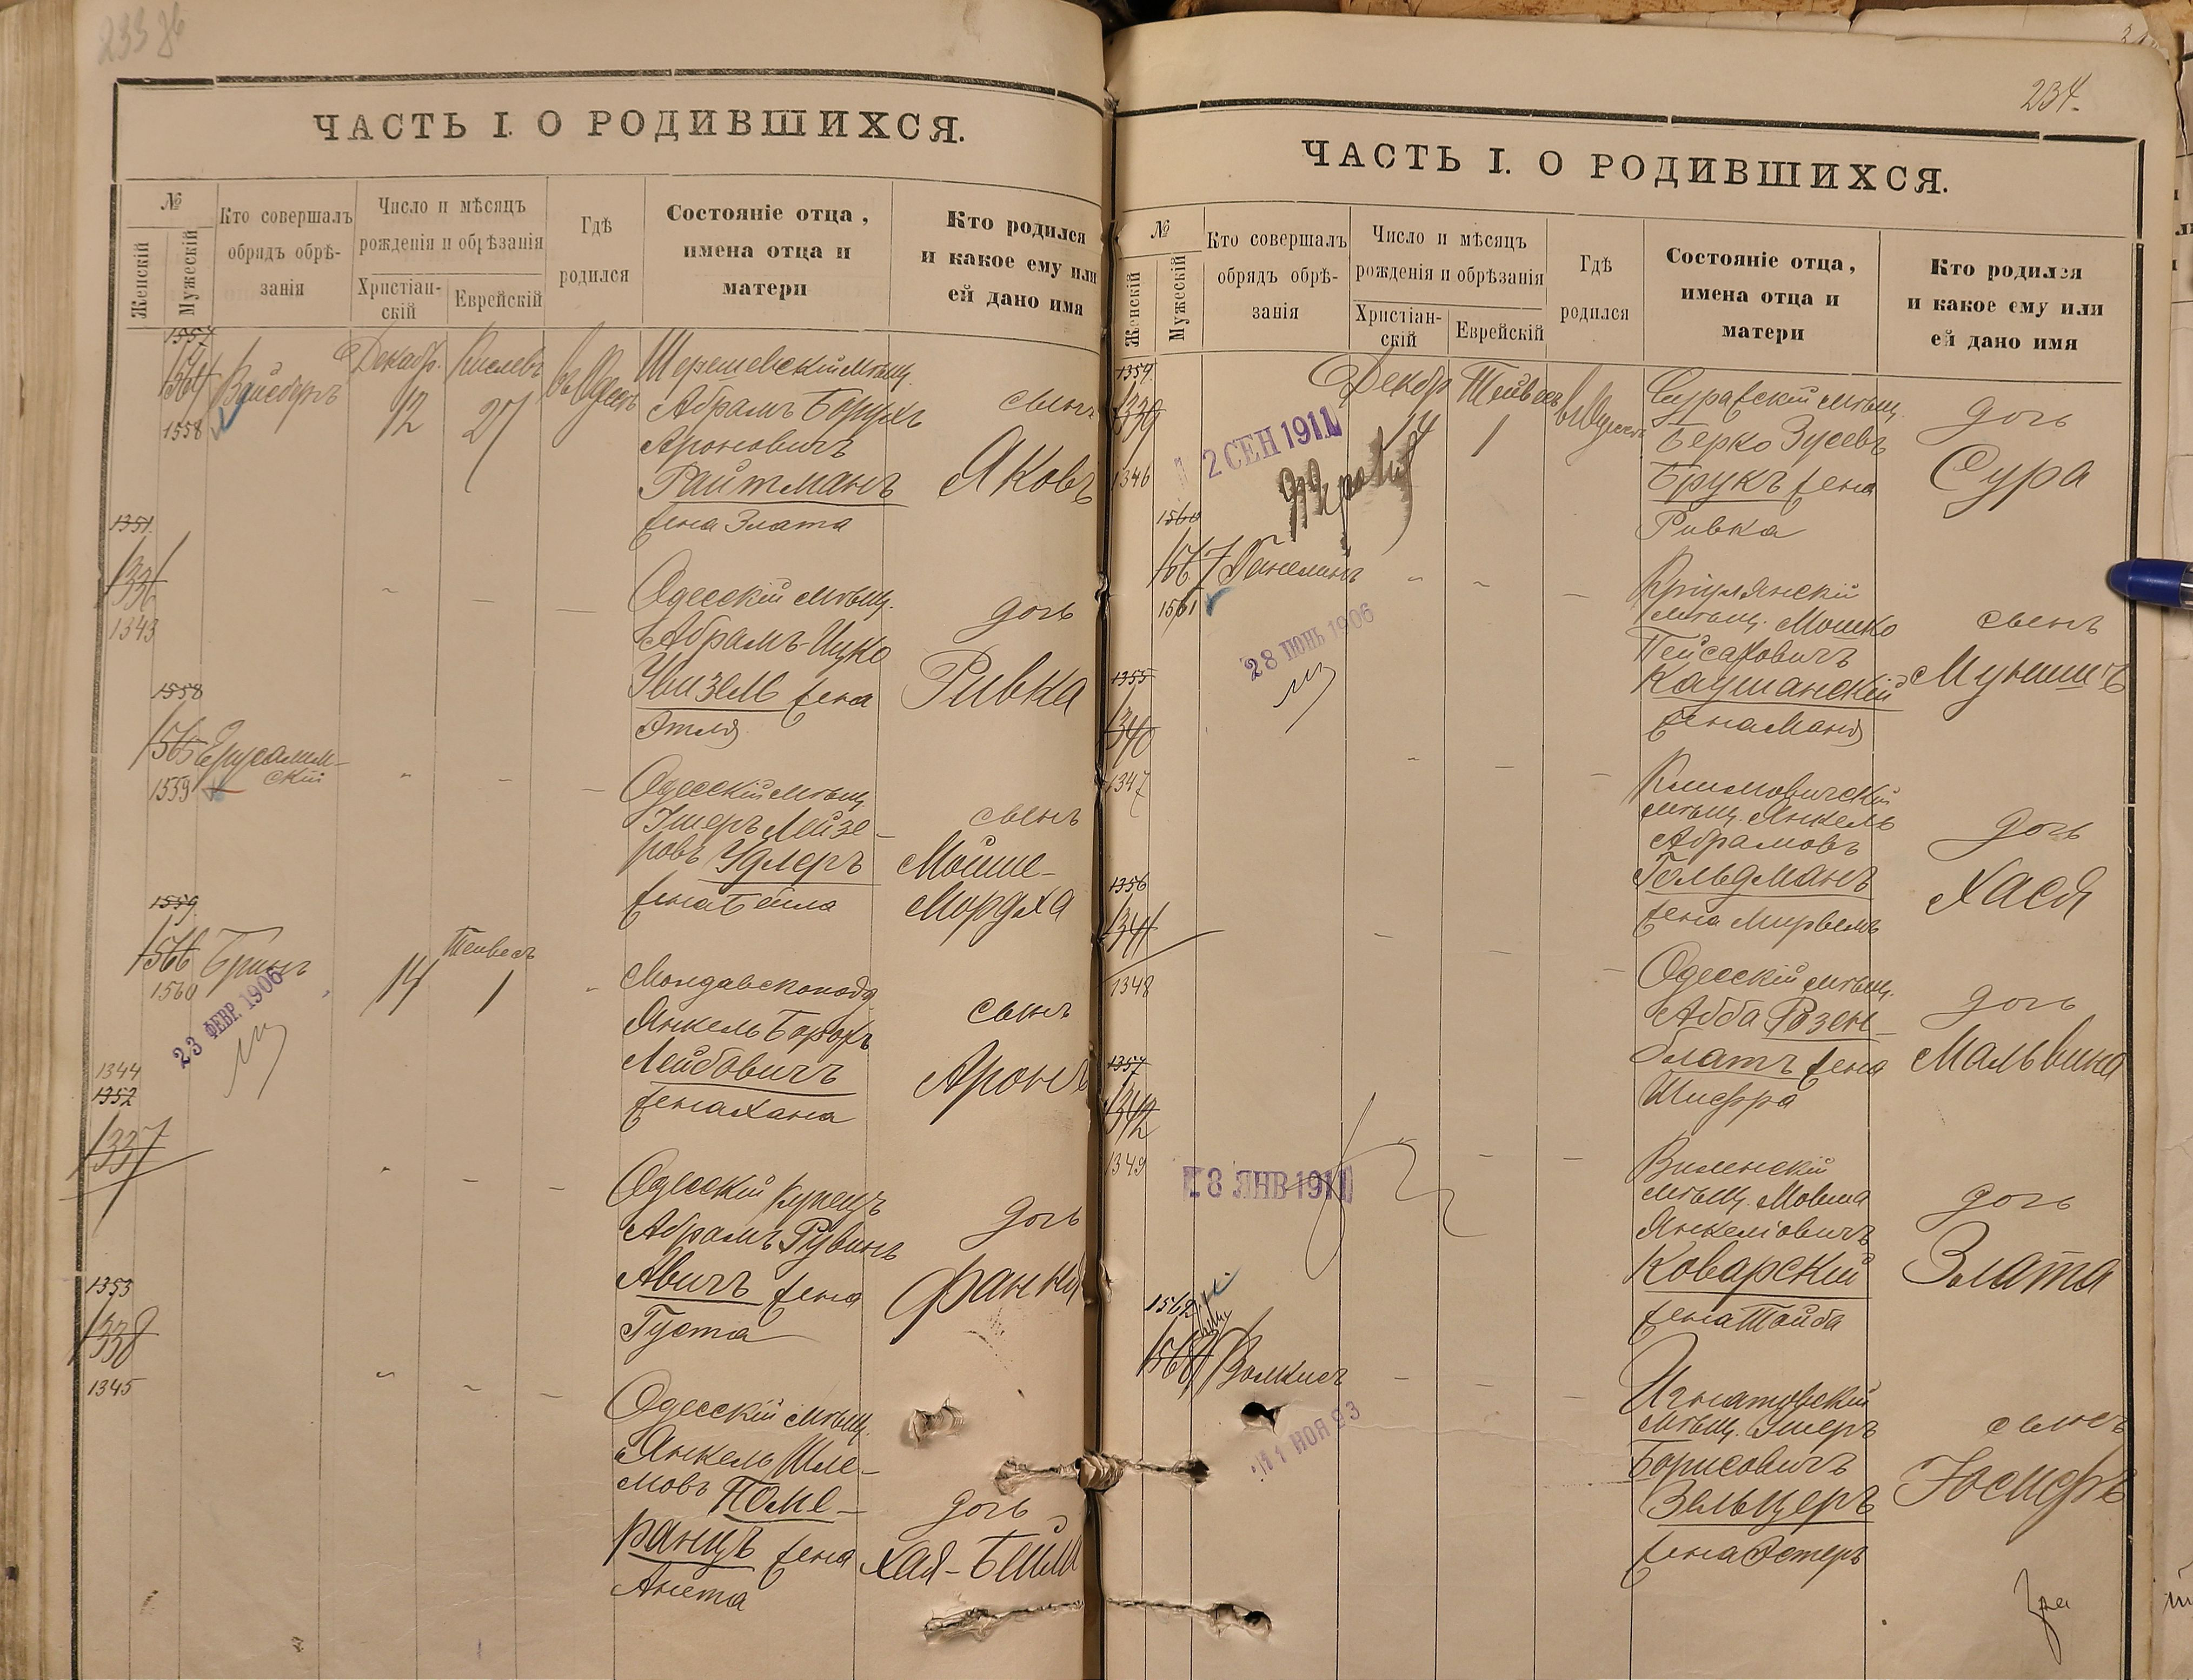 233 об
ЧАСТЬ I. О РОДИВШИХСЯ.
№
Женскій
Мужескій
Кто совершалъ
обрядъ обрѣ-
занія
Число и мѣсяцъ
рожденія и обрѣзанія
Христіан-
скій
Еврейскій
Гдѣ
родился
Состояніе отца,
имена отца и
матери
Кто родился
и какое ему или
ей дано имя
1557
1564
1558
Вайсбургъ
Декабр.
12
Кислевъ
27
въ Одессѣ
Шерешевскій мѣщ.
Абрамъ Борухъ
Ароновичъ
Райтманъ
жена Злата
сынъ
Яковъ
1351
1336
1343
Одесскій мѣщ.
Абрамъ-Ицко
Увизель жена
Этля
дочь
Ривка
1558
1565
1559
Ерусалим-
скій
Одесскій мѣщ.
Ушеръ Лейзе-
ровъ Удлеръ
жена Бейла
сынъ
Мойше-
Мордха
1559
1566
1560
Бринъ
23 ФЕВР. 1906
14
Тейвесъ
1
Молдавскоподд.
Янкель Борухъ
Лейбовичъ
жена Хана
сынъ
Аронъ
1344
1352
1337
Одесскій купецъ
Абрамъ Рувинъ
Авичъ жена
Густа
дочь
Фання
1353
1338
1345
Одесскій мѣщ.
Янкель Шле-
мовъ Поме-
ранцъ жена
Анета
дочь
Хая-Бейла
234.
ЧАСТЬ I. О РОДИВШИХСЯ.
№
Женскій
Мужескій
Кто совершалъ
обрядъ обрѣ-
занія
Число и мѣсяцъ
рожденія и обрѣзанія
Христіан-
скій
Еврейскій
Гдѣ
родился
Состояніе отца,
имена отца и
матери
Кто родился
и какое ему или
ей дано имя
1354
1339
1346
2 СЕН 1911
Декабр
14
Тейвесъ
1
въ Одессѣ
Суражскій мѣщ.
Берко Зусевъ
Брукъ жена
Ривка
дочь
Сура
1560
1567
1561
Ганелинъ
28 ІЮНЬ 1906
Кріулянскій
мѣщ. Мошко
Пейсаховичъ
Каушанскій
жена Маня
сынъ
Мунишъ
1355
1340
1347
Климовичскій
мѣщ. Янкель
Абрамовъ
Гольдманъ
жена Мирвель
дочь
Хася
1356
1341
1348
Одесскій мѣщ.
Абба Розен-
блатъ жена
Шифра
дочь
Мальвина
1357
1342
1349
8 ЯНВ 1911
Виленскій
мѣщ. Мовша
Янкеліовичъ
Коварскій
жена Тойба
дочь
Злата
1562
1568
Волкисъ
11 НОЯ 93
Игнатовскій
мѣщ. Ушеръ
Борисовичъ
Зельцеръ
жена Эстеръ
сынъ
Іосифъ